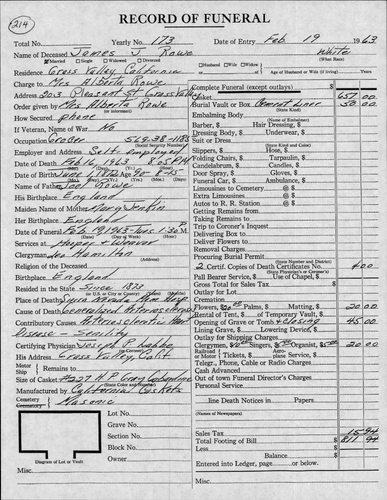 214
RECORD OF FUNERAL
Total No. Yearly No. 173 Date of Entry Feb 19 1963
Name of Deceased James J Rowe White
Married Single Widowed Divorced Husband Wife Widow
Residence Grass Valley, California
Charge to Mrs Alberta Rowe
Address Pleasant St Grass Valley
Order given by Mrs Alberta Rowe
How Secured phone
If Veteran, Name of War No
Occupation 569-38-1185
Employer and Address Self employed
Date of Death Feb 16, 1963 8:05 P.M.
Date of Birth June 1, 1872 Age 90-8-15
Name of Father Joel Rowe
His Birthplace England
Maiden Name of Mother Mary Jenkin
Her Birthplace England
Date of Funeral Feb 19, 1963-Tues. 1:30 P.M.
Services at Hooper & Weaver
Clergyman Dr Hamilton
Religion of the Deceased
Birthplace England
Resided in the State Since 1873
Place of Death Sierra Nevada Mem Hosp
Cause of Death Generalized Arteriosclerosis
Contributory Causes Arteriosclerotic Heart
Disease - Senility
Certifying Physician Joseph P.
His Address Grass Valley, Calif
Motor Ship
Remains to
Size of Casket
Manufactured by California Caskets
Cemetery Masonic
Lot No.
Grave No.
Section No.
Block No.
Owner
Diagram of Lot or Vault
Misc.
Age of Husband or Wife (if living) Years
Complete Funeral (except outlays) $
Casket 657 00
Burial Vault or Box Cement Liner 50 00
Embalming Body
Barber, $ Hair Dressing, $
Dressing Body, $ Underwear, $
Suit or Dress
Slippers, $ Hose, $
Folding Chairs, $ Tarpaulin, $
Candelabrum, $ Candles, $
Door Spray, $ Gloves, $
Funeral Car, $ Ambulance, $
Limousines to Cemetery @ $
Extra Limousines @ $
Autos to R. R. Station @ $
Getting Remains from
Taking Remains to
Trip to Coroner's Inquest
Delivering Box to
Deliver Flowers to
Removal Charges
Procuring Burial Permit
2 Certif. Copies of Death Certificates No. 4 00
Pall Bearer Service, $ Use of Chapel, $
Gross Total for Sales Tax $
Outlay for Lot
Cremation
Flowers, $20.00 Palms, $ Matting, $ 20 00
Rental of Tent, $ of Temporary Vault, $
Opening of Grave or Tomb & Closing 45 00
Lining Grave, $ Lowering Device, $
Outlay for Shipping Charges
Clergymen, $ Singers, $ Organist, $5.00 20 00
Railroad or Motor Tickets, $ Aero Service, $
Telegr., Phone, Cable or Radio Charges
Cash Advanced
Out of town Funeral Director's Charges
Personal Service
line Death Notices in Papers
(Names of Newspapers)
Sales Tax 15 94
Total Footing of Bill $ 811 94
Less
Balance $
Entered into Ledger, page or below.
Misc.